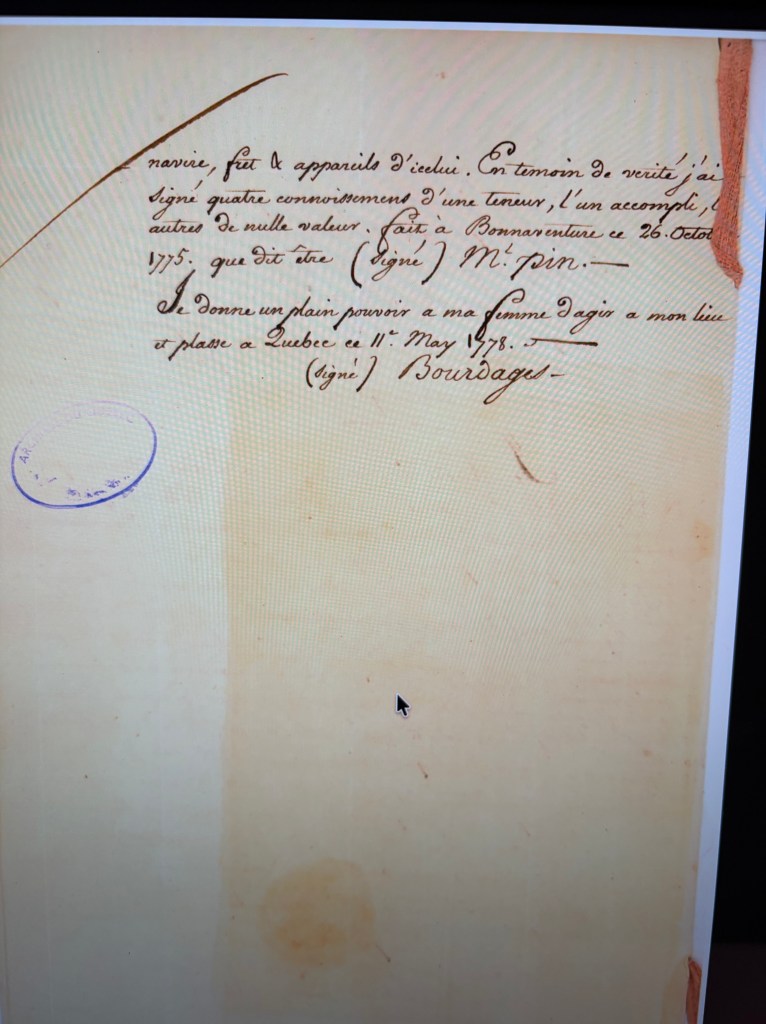 navire, fret & appareils d'icelui. En temoin de verité j'ai
signé quatre connoissemens d'une teneur, l'un accompli, l
autres de nulle valeur. fait à Bonnaventure ce 26. Octob
1775. que dit être (signé) Mt. pin. —
Je donne un plain pouvoir a ma femme dagir a mon lieu
et plasse a Quebec ce 11e. May 1778. —
(signé) Bourdages —